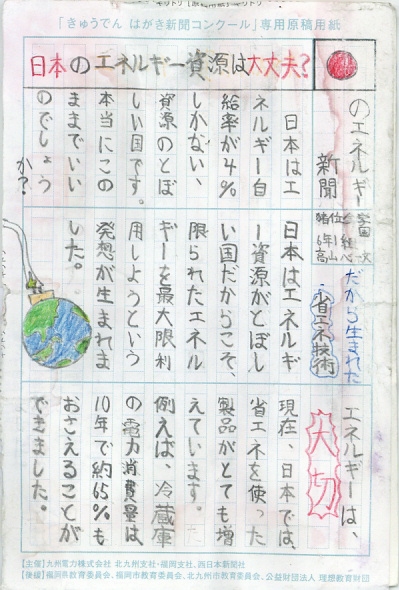 「きゅうでん はがき新聞コンクール」専用原稿用紙
日本のエネルギー資源は大丈夫?
のエネルギー
新聞
学園
6年1組
日本はエ
ネルギー自
給率が4%
しかない、
資源のとぼ
しい国です。
本当にこの
ままでいい
のでしょう
か?
だから生まれた
省エネ技術
日本はエネルギ
ー資源がとぼし
い国だからこそ、
限られたエネル
ギーを最大限利
用しようという
発想が生まれま
した。
エネルギーは、
大切
現在、日本では、
省エネを使った
製品がとても増
えています。
例えば、冷蔵庫
の電力消費量は、
10年で約65%も
おさえることが
できました。
【主催】九州電力株式会社 北九州支社・福岡支社、西日本新聞社
【後援】福岡県教育委員会、福岡市教育委員会、北九州市教育委員会、公益財団法人 理想教育財団